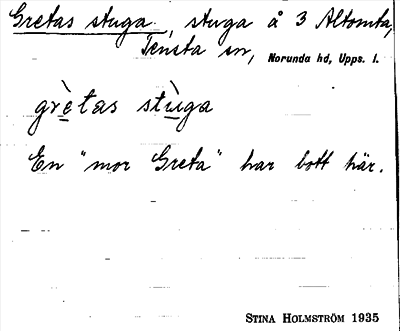 Gretas stuga, stuga å 3 Altomta,
Tensta sn, Norunda hd, Upps. l.
grètas stùga
En "mor Greta" har bott här.
STINA HOLMSTRÖM 1935